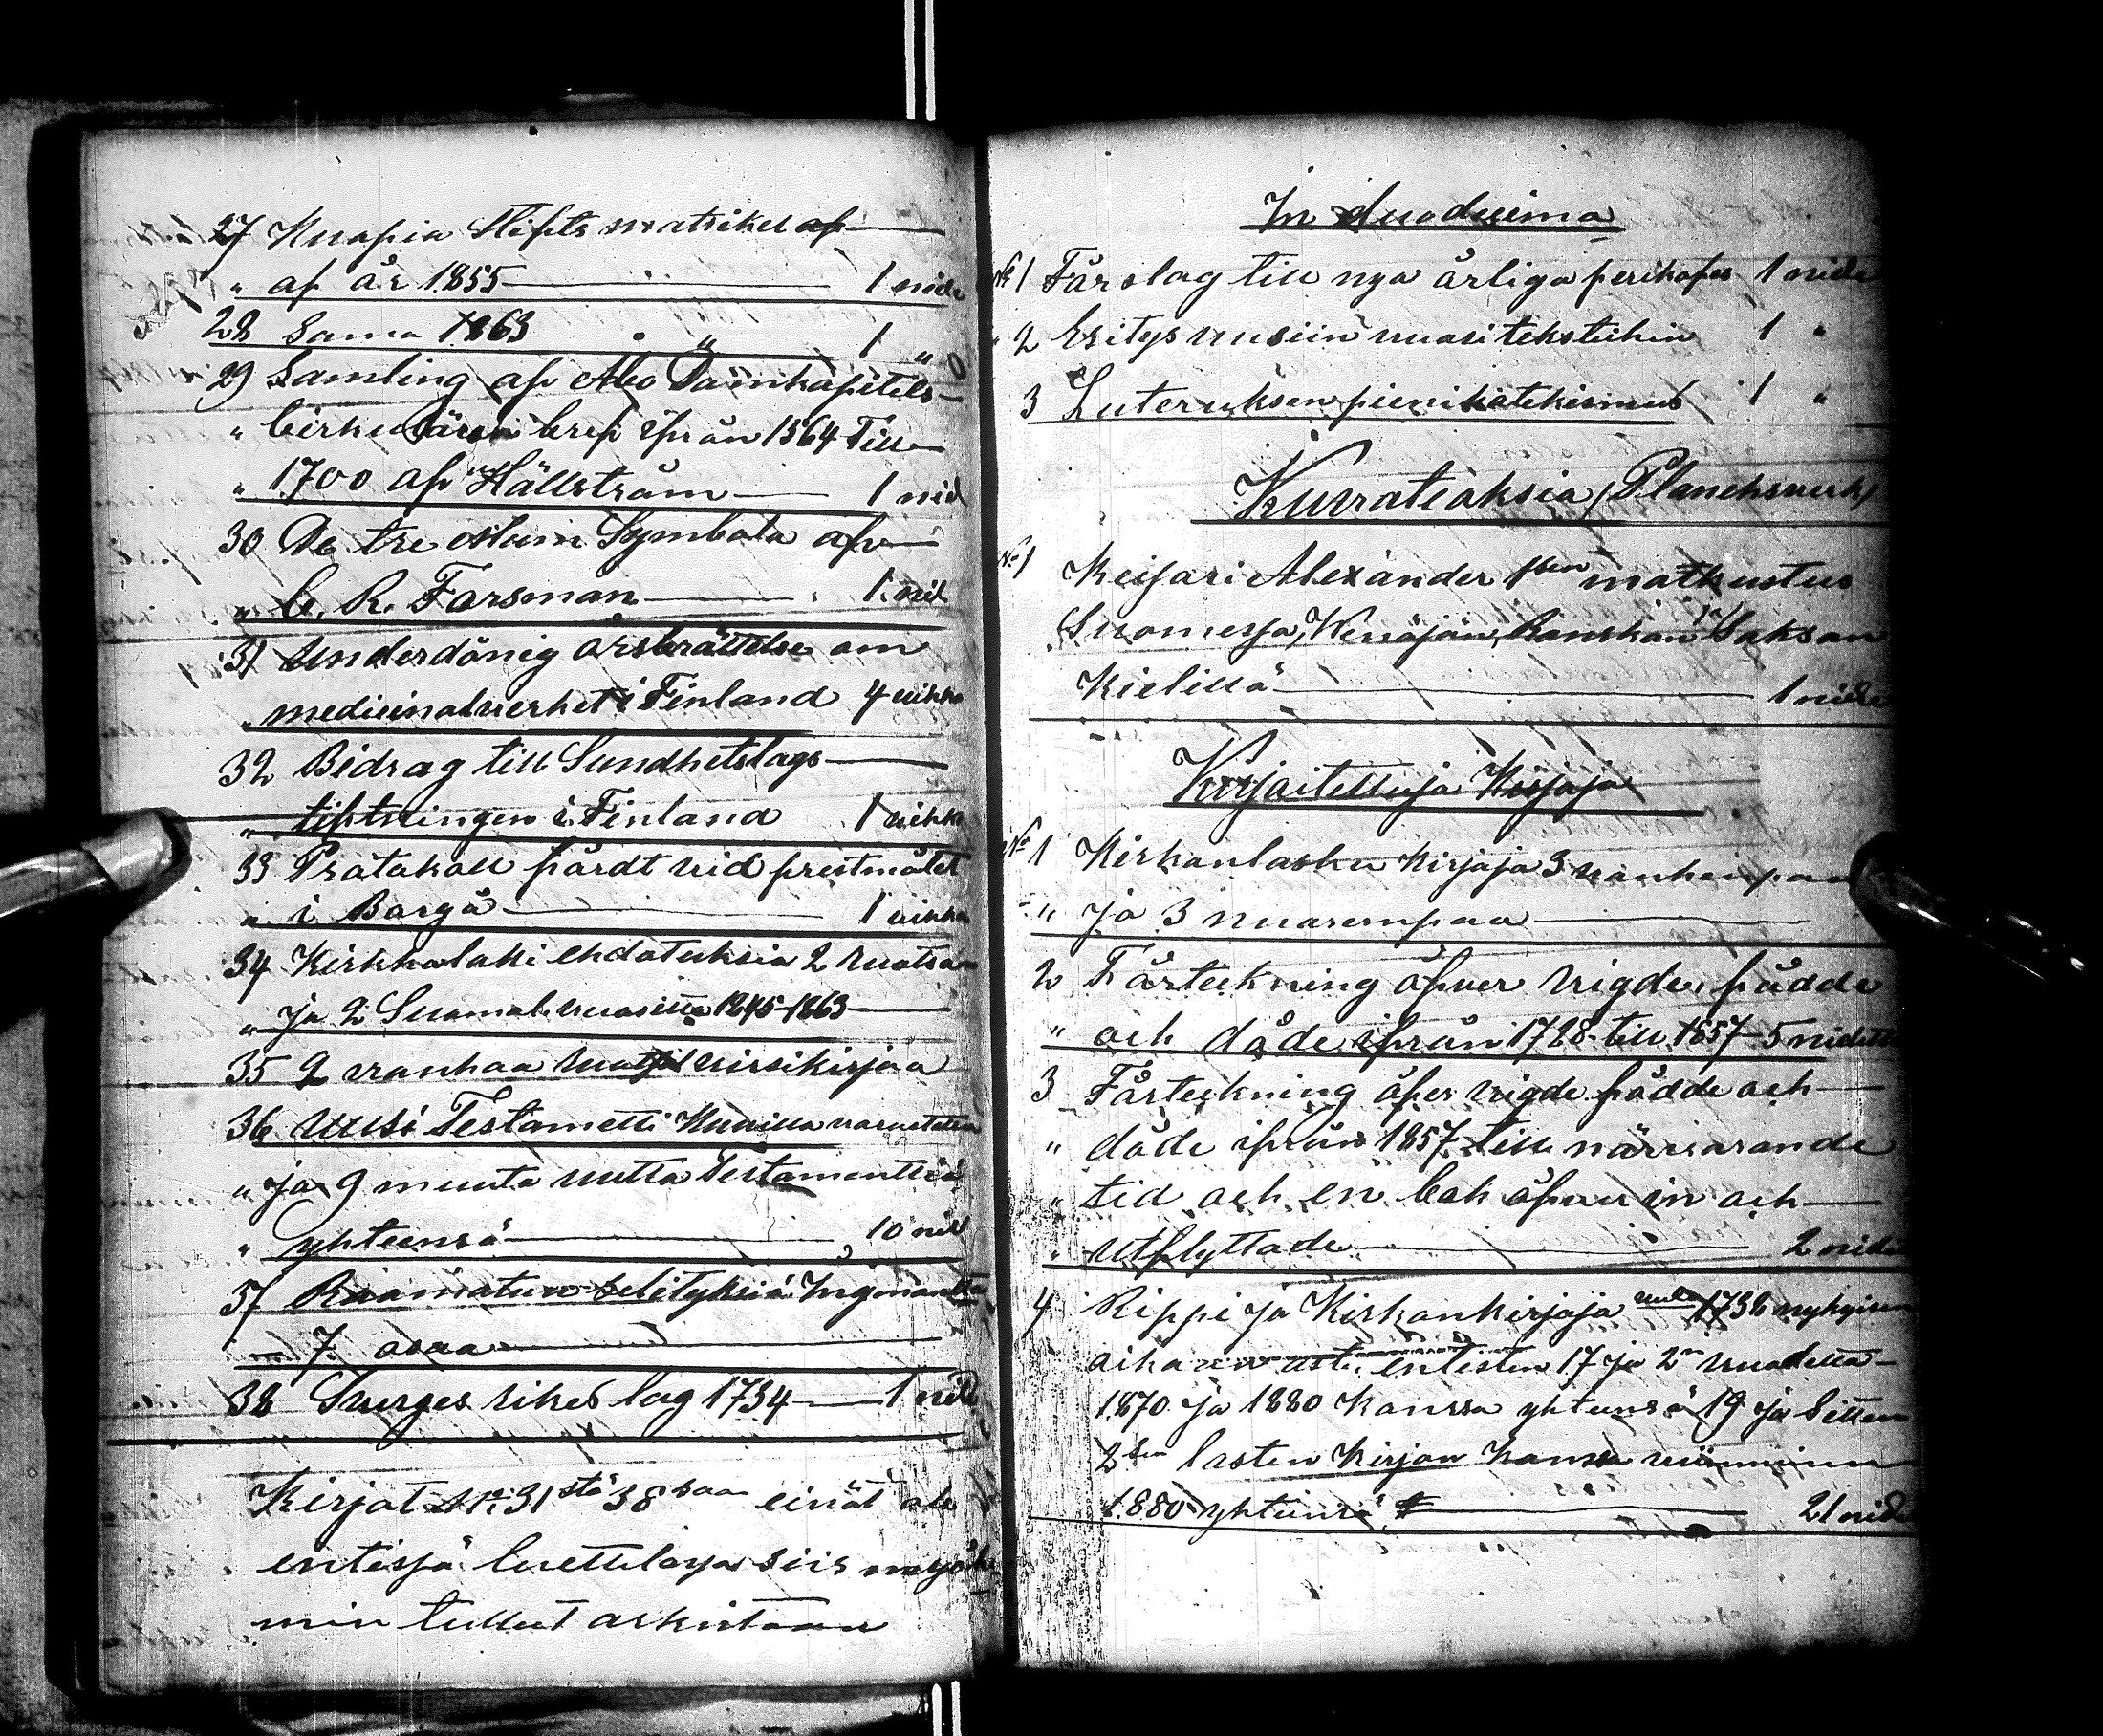 27 Kuopio Stifts matrikel af
" af år 1855 1 nide
28 Sama 1863 " 1 "
29 Samling af Åbo Domkapitels
" Cirkulären bref ifrån 1564 Till
" 1700 af Hällström 1 nid
30 De tre ekum Symbola af
" C. R. Forsman 1 nid
31 Underdånig årsberättelse om
" medicinalverket i Finland 4 vihko
32 Bidrag till Sundhetslags
" tiftningen i Finland 1 vihko
33 Protokoll fördt vid prestmötet
" i Borgå 1 vihko
34 Kirkkolaki ehdotuksia 2 ruotsa
" ja 2 Suomal. vuosilta 1845-1863
35 2 vanhaa virsikirjaa
36 Uusi Testametti Kuvilla varustettu
" ja 9 muuta uutta Testamenttiä
" yhteensä 10 nid
37 Raamatun selityksiä Ingmanilta
7 osaa
38 Sverges rikes lag 1734 1 nid
Kirjat No 31 stä 38 saan eivät ole
entisessä luettelossa siis myöhe
min tulleet arkistoon
In duodecima
No 1 Förslag till nya årliga perikoper 1 nide
" 2 Esitys uusiin vuosi teksteihin 1 "
3 Luteruksen pieni katekismus 1 "
Kuvateoksia / Planchsverk /
No 1 Keisari Alexander 1sen matkustus
Suomessa, Venäjän, Ranskan ja Saksan
Kielillä 1 nide
Kirjoitettuja Kirjoja
No 1 Kirkonlasku Kirjoja 3 vanhempaa
" ja 3 nuorempaa
2 Förteckning öfver vigde, födde
" och döde ifrån 1728 till 1857 5 nidettä
3 Förteckning öfver vigde födde och
" döde ifrån 1857 till närvarande
" tid och en bok öfver in och
" utflyttade 2 nide
4 Rippi ja Kirkonkirjoja 1738 nykyisen
aikaan asti entisten 17 ja 2n vuodelta
1870 ja 1880 kanssa yhteensä 19 ja Sitten
2sen lasten Kirjan kanssa viiminen
1880 yhteensä 21 nide